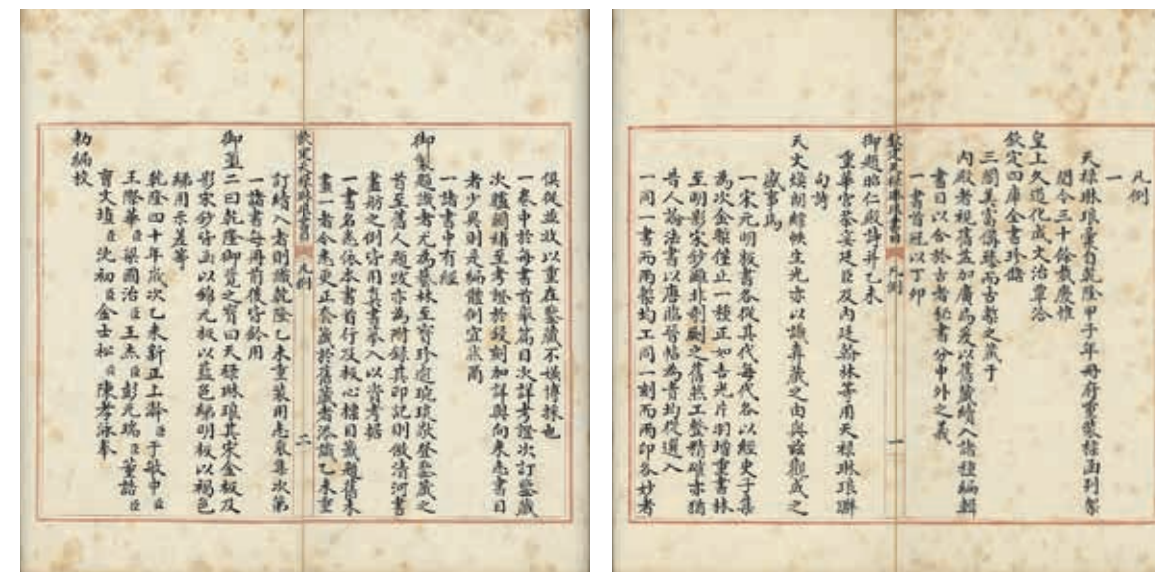 凡例
一
天祿琳琅彙自乾隆甲子年冊府重裝標函列架
閱今三十餘載慶惟
皇上久道化成文治覃洽
欽定四庫全書珍儲
三閣美富溝臻而古槧之藏于
內殿者視舊益加廣焉爰以舊藏續入諸種編輯
書目以合於古者秘書分中外之義
一書首冠以丁卯
欽定天祿琳琅書目 凡例 一
御題昭仁殿詩并乙未
重華宮茶宴廷臣及內廷翰林等用天祿琳琅聯
句詩
天文煥朗緗帙生光亦以識弆藏之由與茲觀成之
盛事焉
一宋元明板書各從其代每代各以經史子集
為次金槧僅止一種正如吉光片羽增重書林
至明影宋鈔雖非剞劂之舊然工整精確亦猶
昔人論法書以唐臨晉帖為貴均從選入
一同一書而兩槧均工同一刻而兩印各妙者
俱從並收以重在鑒藏不嫌博採也
一卷中於每書首舉篇目次詳考證次訂鑒藏
次臚闕補至考證於鋟刻加詳與向來志書目
者少異則是編體例宜然爾
一諸書中有經
御製題識者尤為藝林至寶珍逾琬琰敬登鑒藏之
首至舊人題跋亦為附錄其印記則倣清河書
畫舫之例皆用真書摹入以資考據
一書名悉依本書首行及板心標目籤題舊未
畫一者今悉更正套籤於舊藏者添識乙未重
欽定天祿琳琅書目 凡例 二
訂續入者則識乾隆乙未重裝用志裒集次第
一諸書每冊前後皆鈐用
御璽二曰乾隆御覽之寶曰天祿琳琅其宋金板及
影宋鈔皆函以錦元板以藍色綈明板以褐色
綈用示差等
乾隆四十年歲次乙未新正上澣臣于敏中臣
王際華臣梁國治臣王杰臣彭元瑞臣董誥臣
曹文埴臣沈初臣金士松臣陳孝泳奉
勅編校